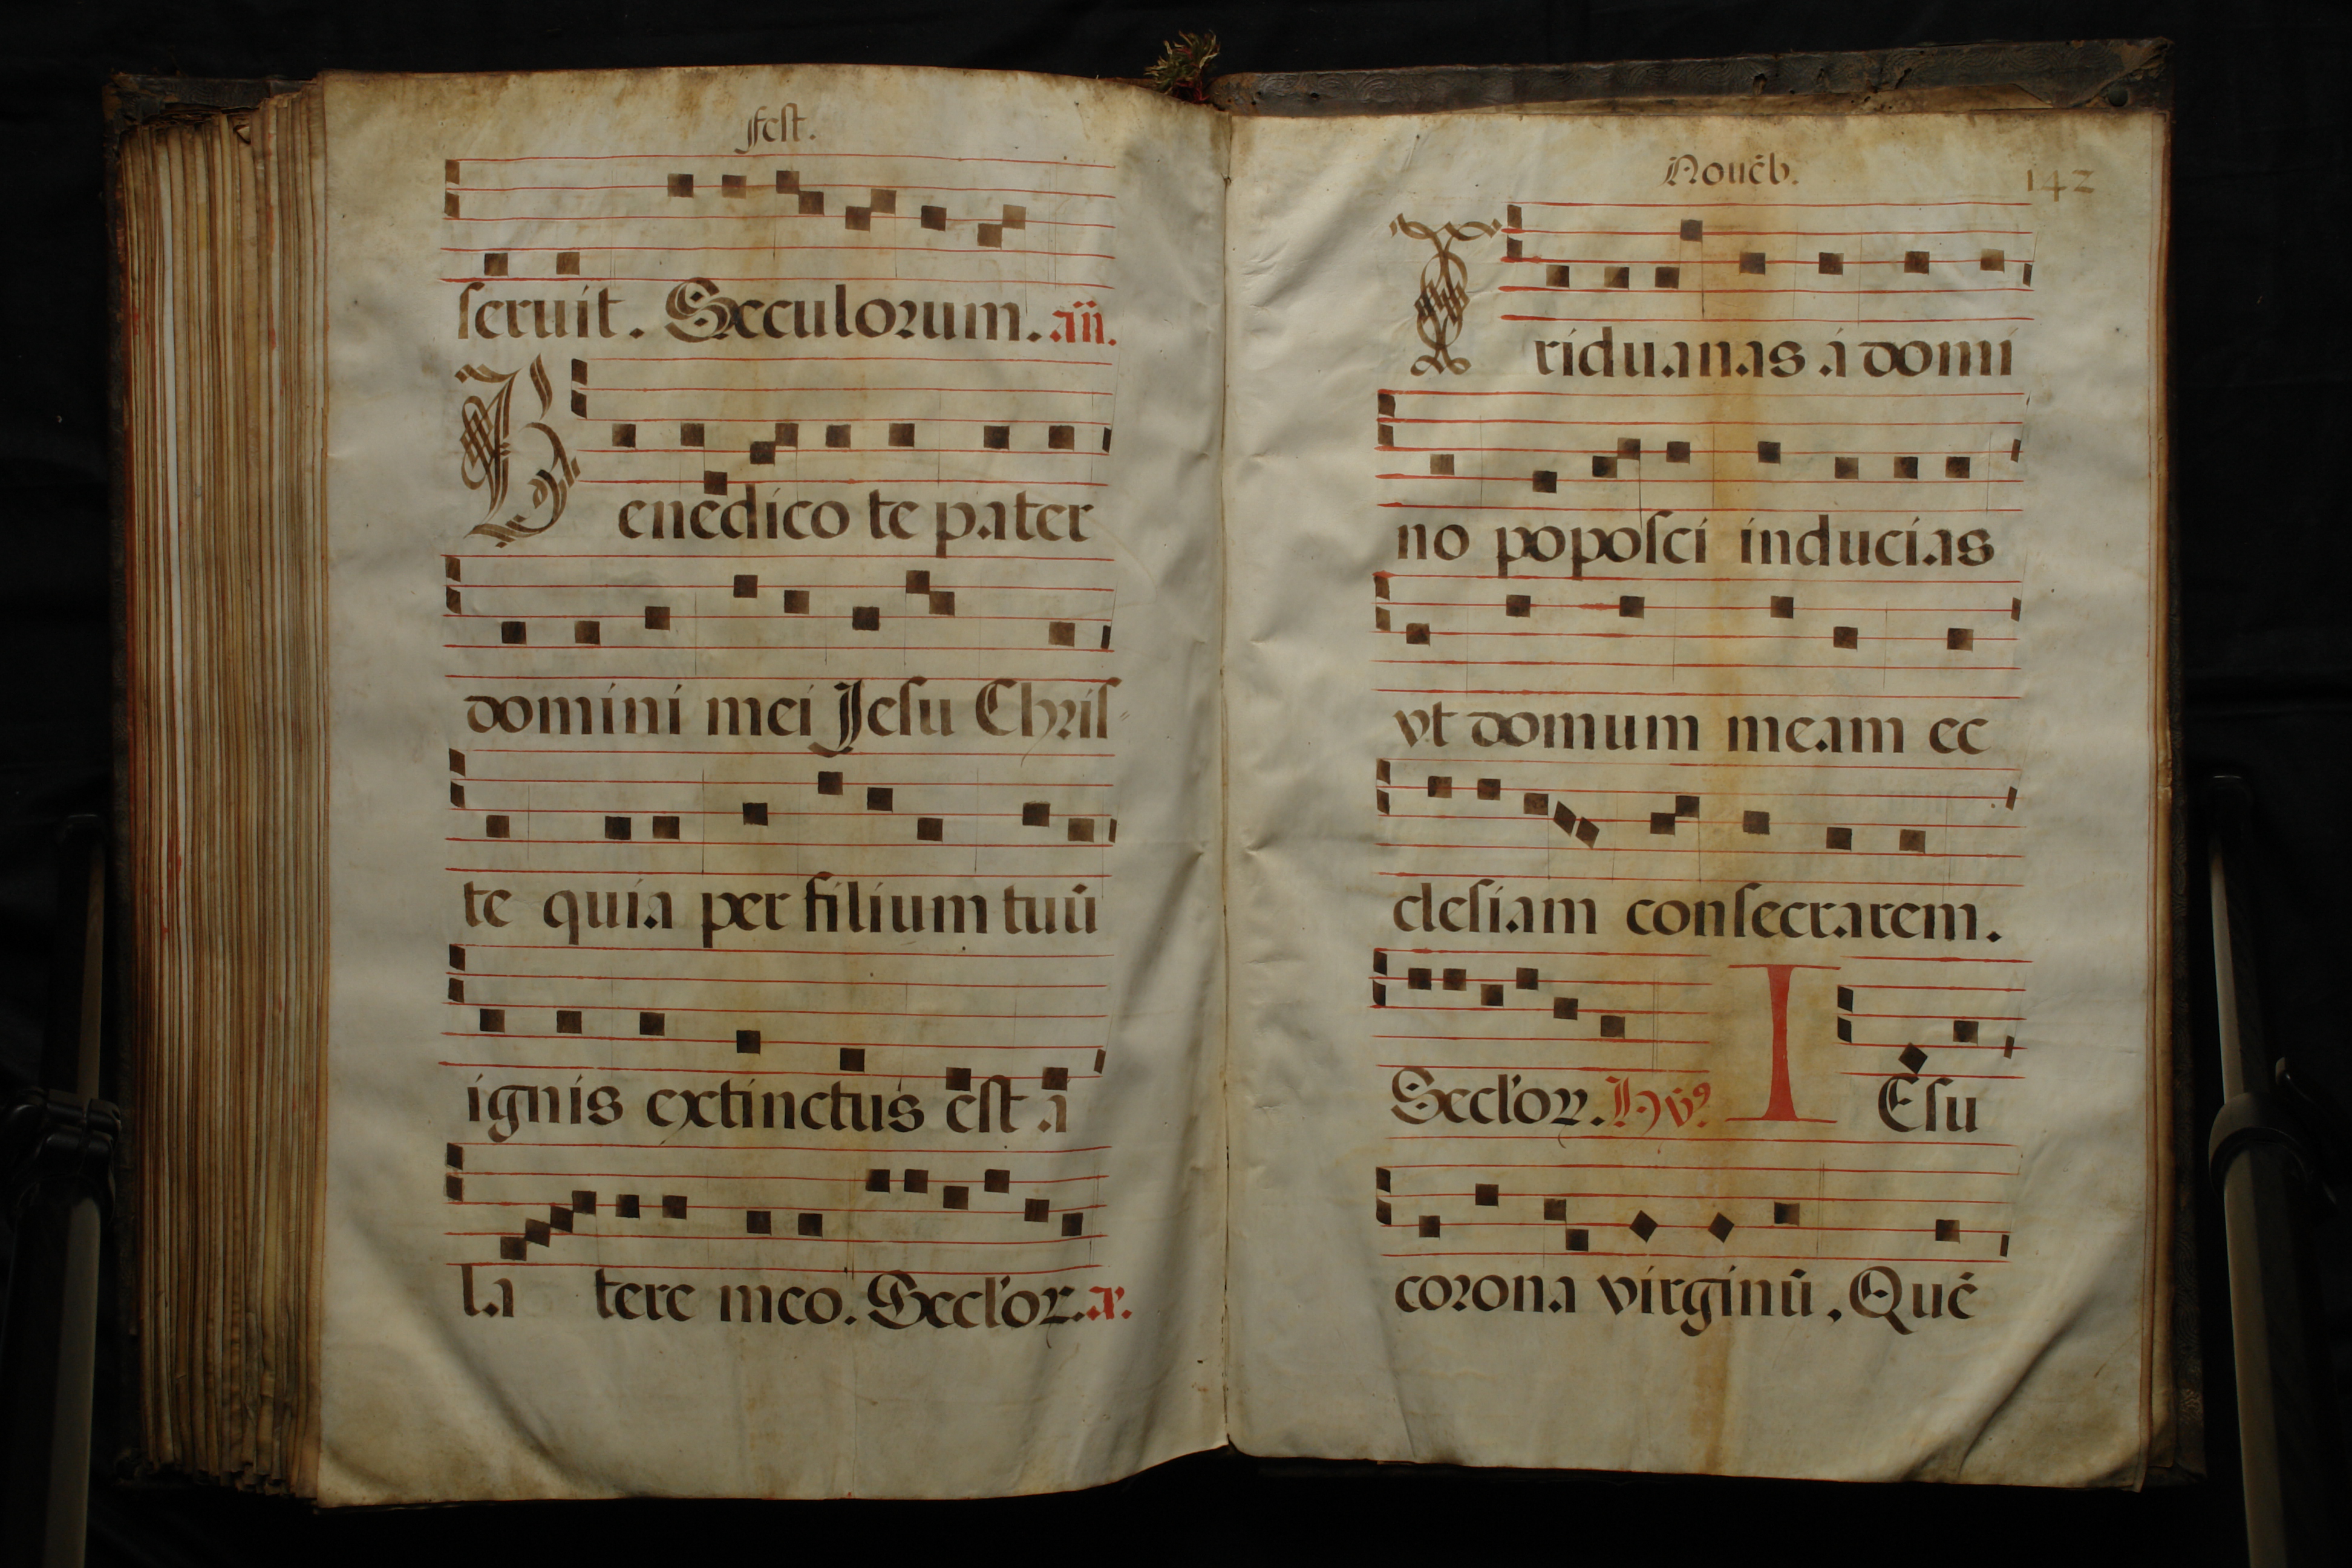 Fest.
seruit. Seculorum. añ.
Benedico te pater
domini mei Jesu Chris=
te quia per filium tuū
ignis extinctus est a
la tere meo. Secl'oꝝ. a℣.
Nouēb. 142
Triduanas a domi
no poposci inducias
vt domum meam ec
clesiam consecrarem.
Secl'oꝝ. Hỹ9 IEsu
corona virginū. Quē